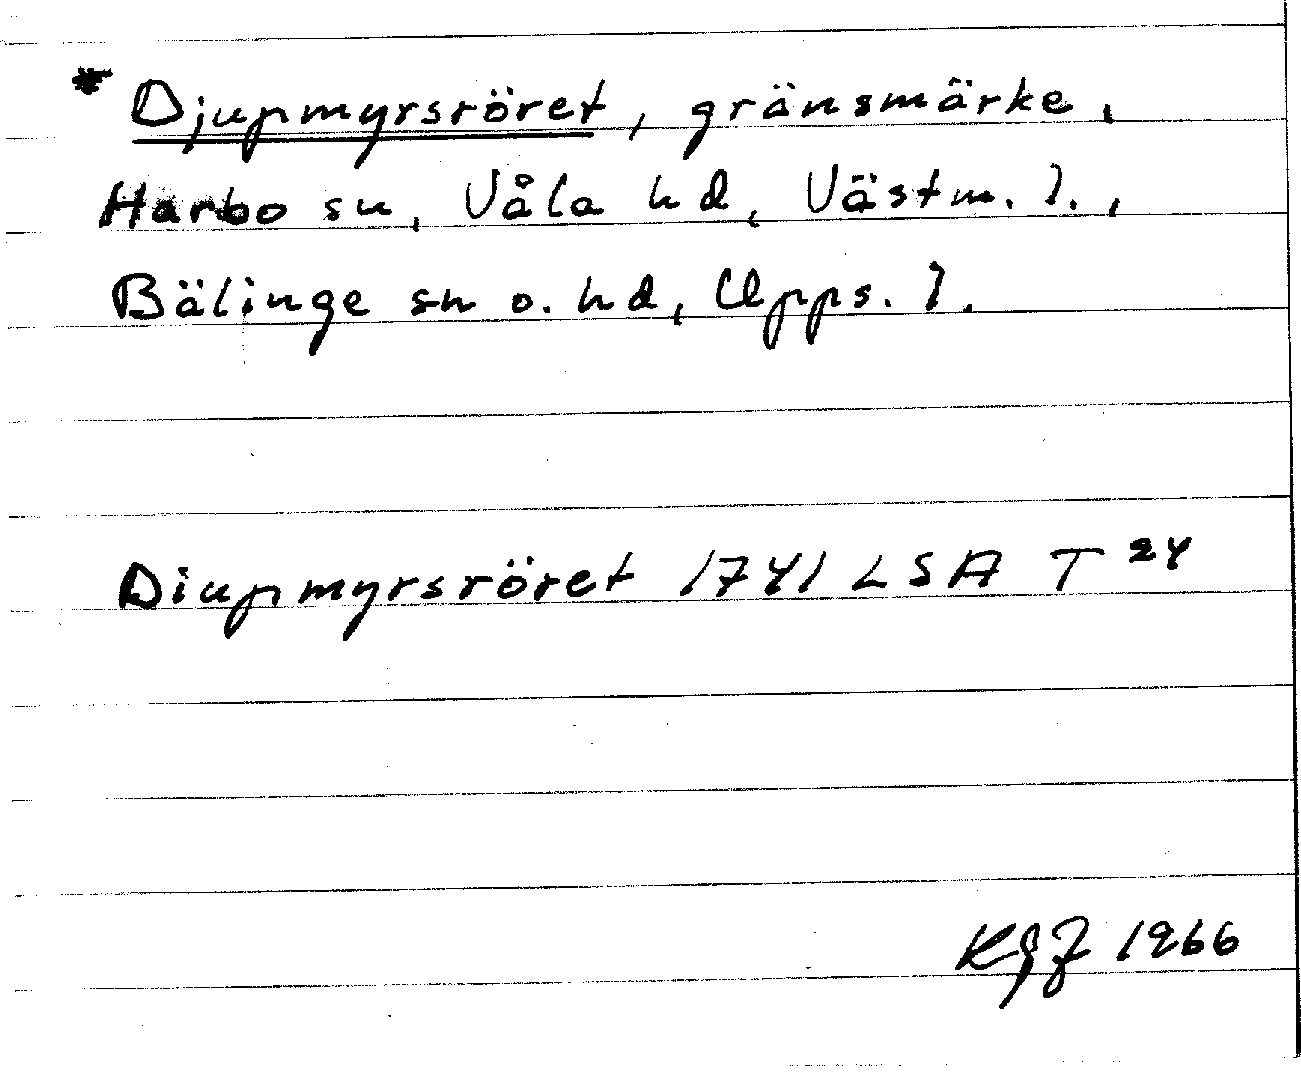 * Djupmyrsröret, gränsmärke,
Harbo sn, Våla hd, Västm. l.,
Bälinge sn o. hd, Upps. l.
Diupmyrsröret 1741 LSA T 24
KGJ 1966